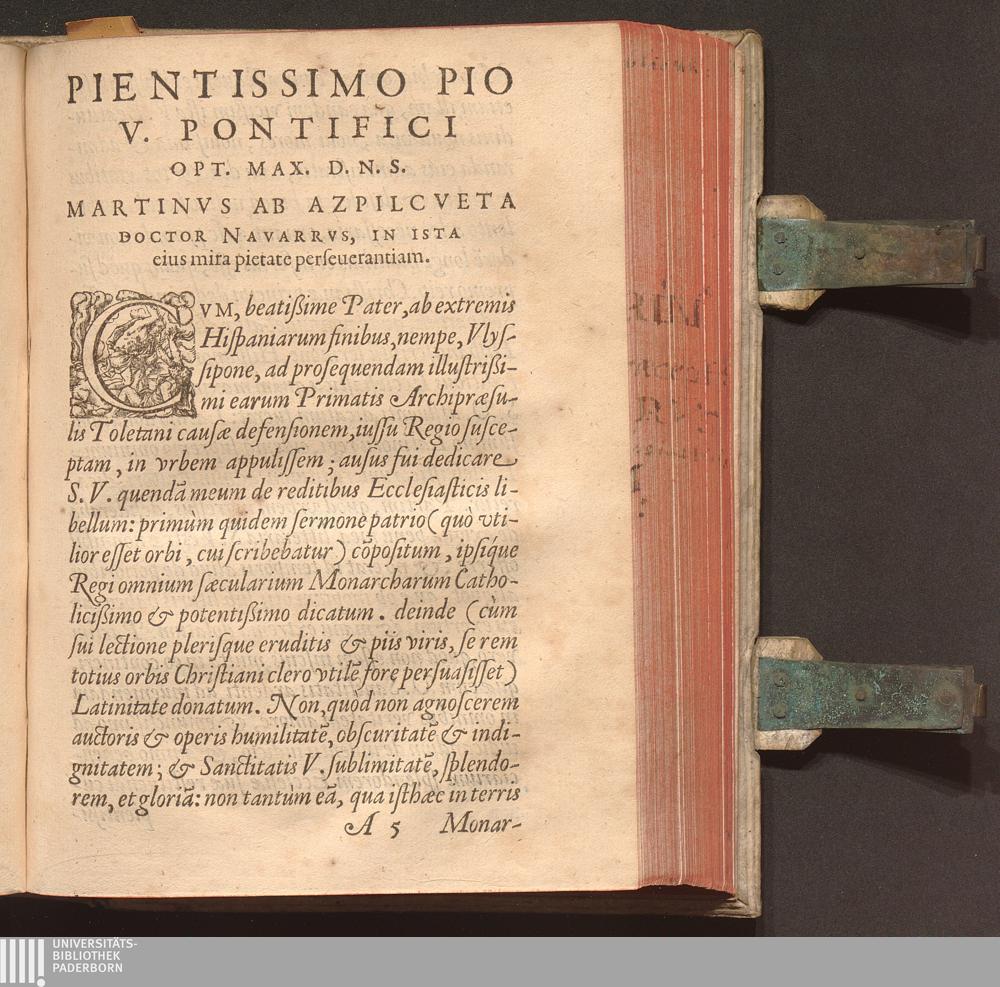 PIENTISSIMO PIO
V. PONTIFICI
OPT. MAX. D. N. S.
MARTINVS AB AZPILCVETA
DOCTOR NAVARRVS, IN ISTA
eius mira pietate perſeuerantiam.
CVM, beatißime Pater, ab extremis
Hiſpaniarum finibus, nempe, Vlyſ-
ſipone, ad proſequendam illuſtrißi-
mi earum Primatis Archipræſu-
lis Toletani cauſæ defenſionem, iuſſu Regio ſuſce-
ptam, in vrbem appuliſſem; auſus fui dedicare
S. V. quendā meum de reditibus Eccleſiaſticis li-
bellum: primùm quidem ſermone patrio (quò vti-
lior eſſet orbi, cui ſcribebatur) cōpoſitum, ipſíque
Regi omnium ſæcularium Monarcharum Catho-
licißimo & potentißimo dicatum. deinde (cùm
ſui lectione pleriſque eruditis & piis viris, ſe rem
totius orbis Chriſtiani clero vtilē fore perſuaſiſſet)
Latinitate donatum. Non, quòd non agnoſcerem
auctoris & operis humilitatē, obſcuritatē & indi-
gnitatem; & Sanctitatis V. ſublimitatē, ſplendo-
rem, et gloriā: non tantùm eā, qua iſthæc in terris
A 5 Monar-
UNIVERSITÄTS-
BIBLIOTHEK
PADERBORN